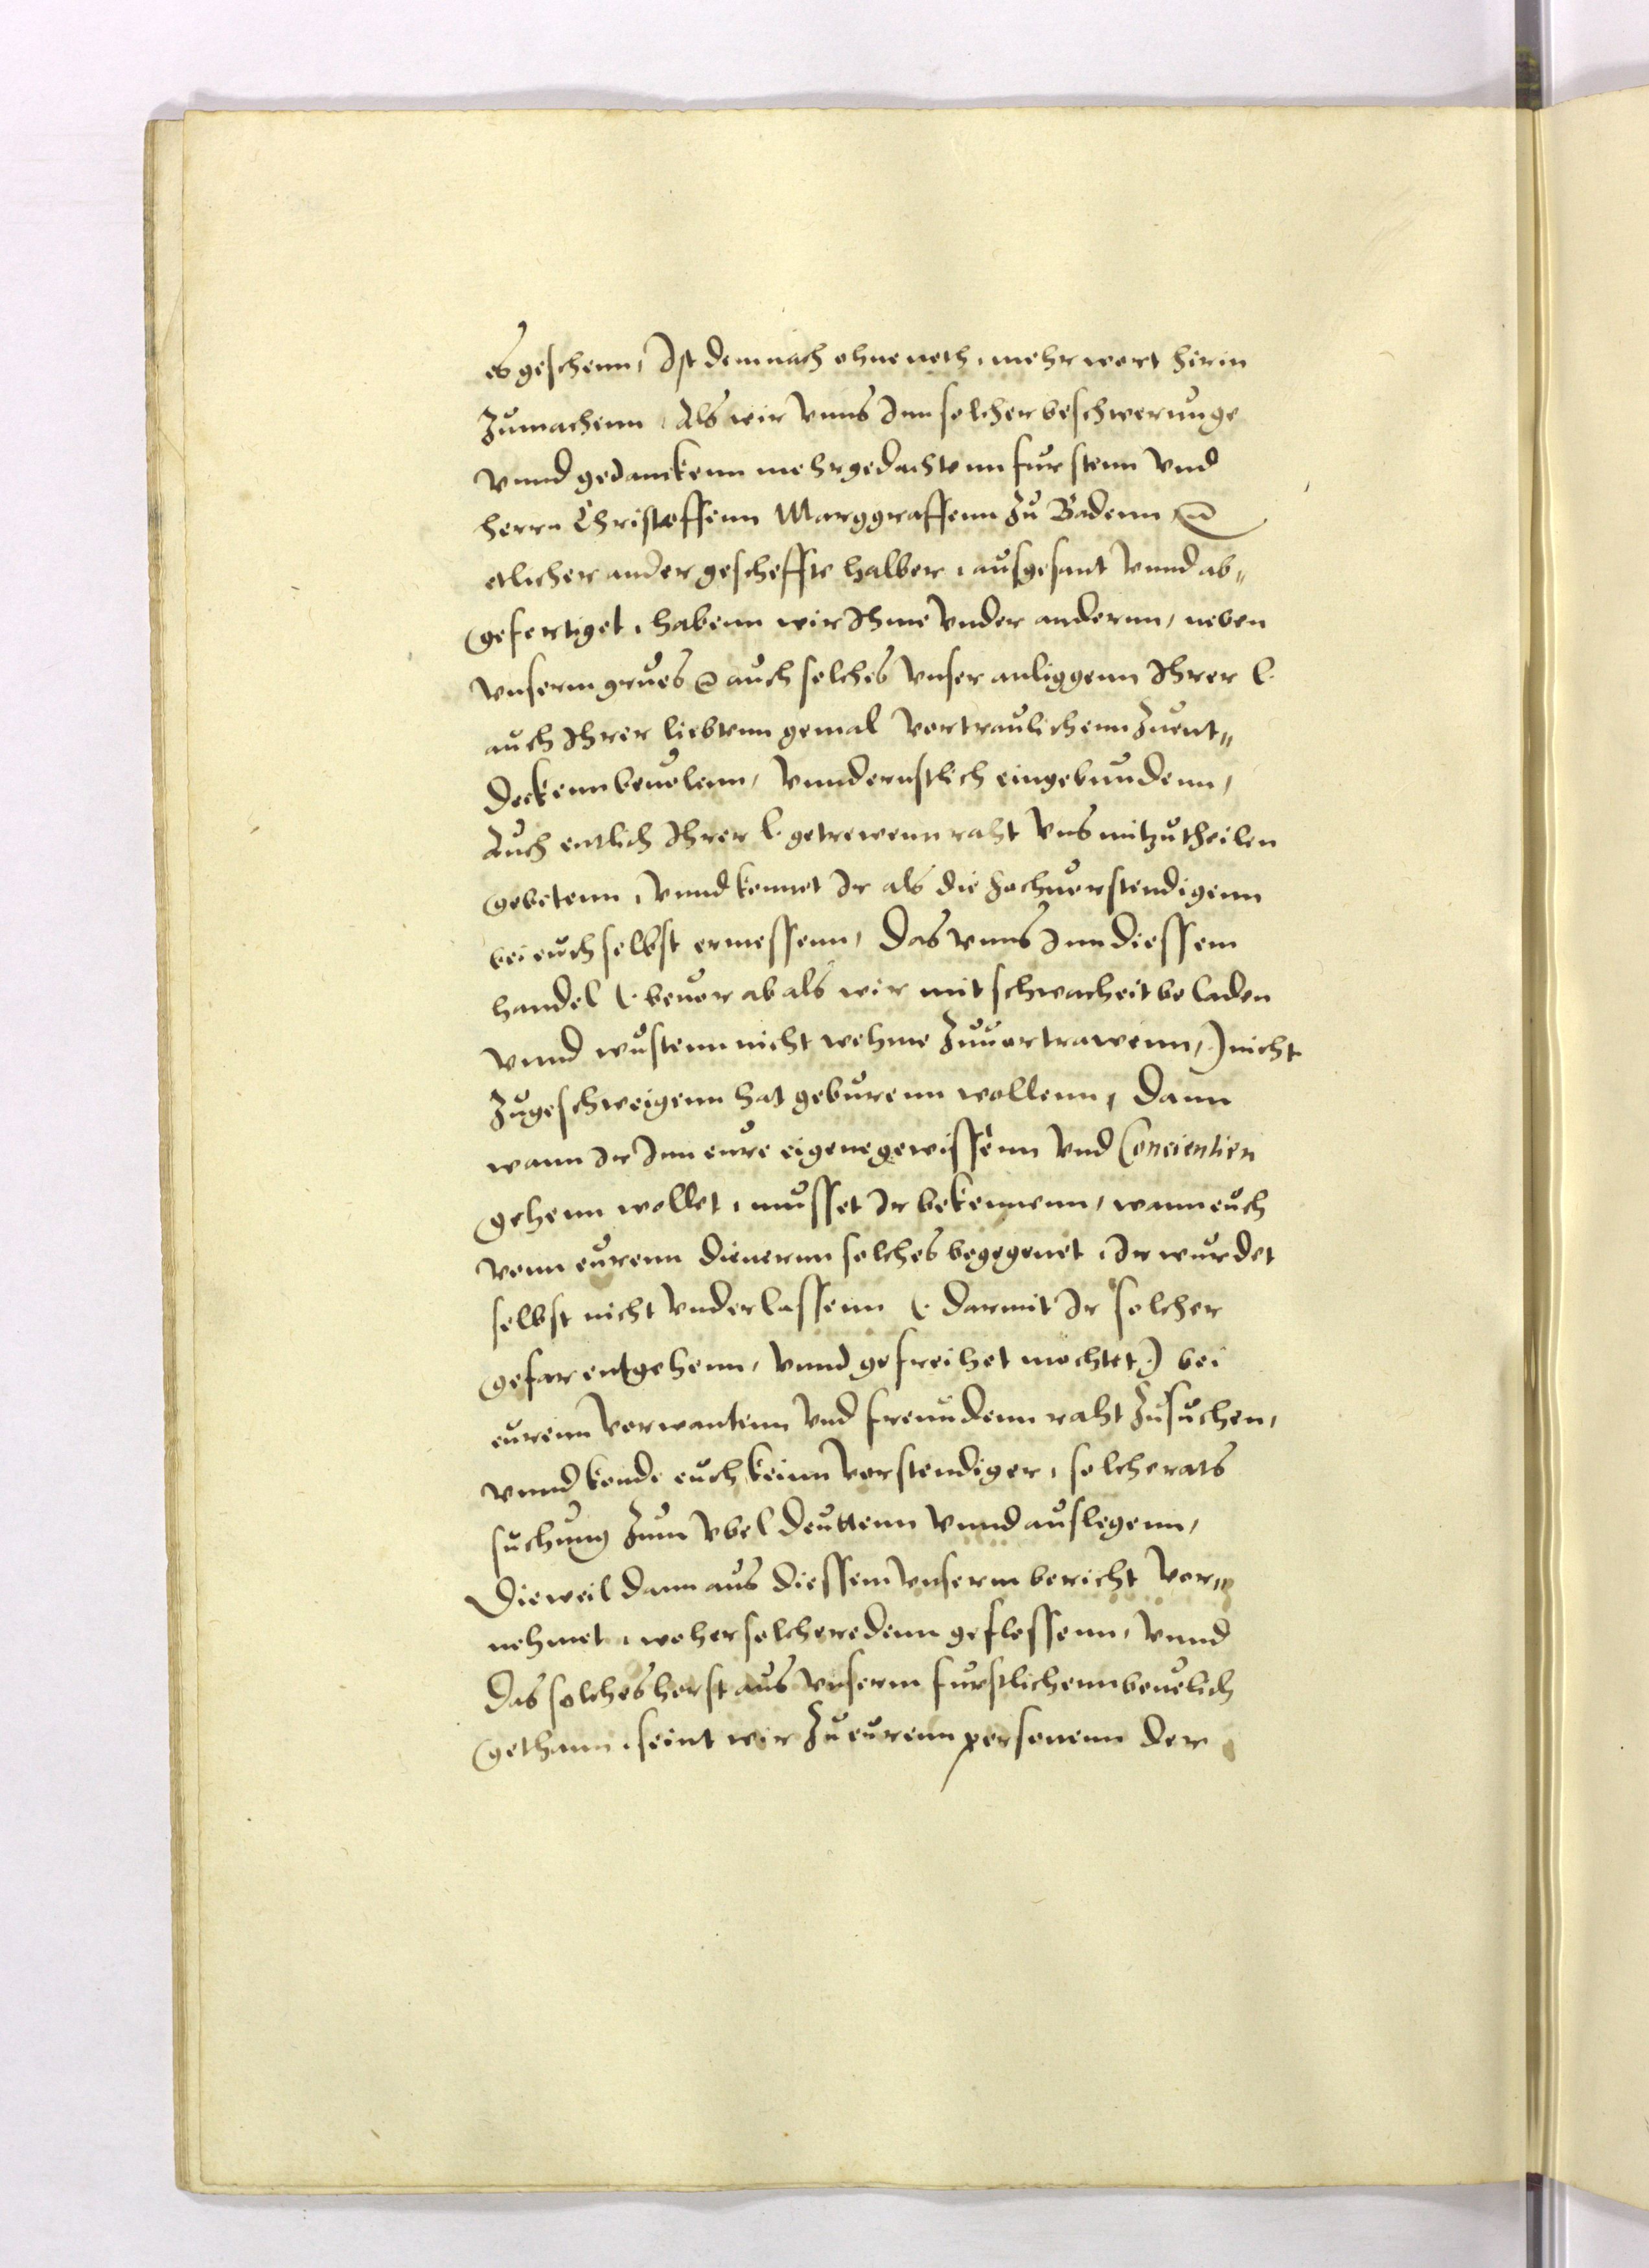 es geschenn, Ist demnach ohne noth, mehr wort hirin
zumachenn, Als wir vnns Inn solcher beschwerunge
vnnd gedanckenn mehrgedachtenn furstenn vnd
herrn Christoffenn Marggraffenn zu Badenn etc
etlicher ander gescheffte halber, ausgesant vnnd ab„
gefertiget, habenn wir Ihme vnder anderun, neben
vnserm grues etc auch solches vnser anliggenn Ihrer l.
auch Ihrer liebtenn gemal vertraulichenn zuent„
deckenn beuolenn, vnnd ernstlich eingebundenn,
Auch entlich Ihrer l. getrewenn raht vns mitzutheilen
gebetenn, vnnd kennet Ir als die hochuerstendigenn
bei euch selbst ermessenn, das vnns Inn diessem
handel (: beuor ab als wir mit schwacheit beladen
vnnd wustenn nicht wehme zuuertrawenn,) nicht
zugeschweigenn hat geburenn wollenn, dann
wann Ir Inn eure eigene gewissenn vnd Concientien
gehenn wollet, musset Ir bekennenn, wann euch
vonn eurenn dienernn solches begegenet, Ir wurdet
selbst nicht vnderlassenn (: darmit Ir solcher
gefar entgehenn, vnnd gefreihet mochtet:) bei
eurenn verwantenn vnd freundenn raht zusuchen,
vnnd konde euch keinn verstendiger, solche rats
suchung zum vbel deuttenn vnnd auslegenn,
Dieweil dann aus diessem vnserm bericht ver„
nehmet, woher solche redenn geflossenn, vnnd
das solches herst aus vnserm furstlichenn beuelich
gethann, seint wir zu eurenn personenn der